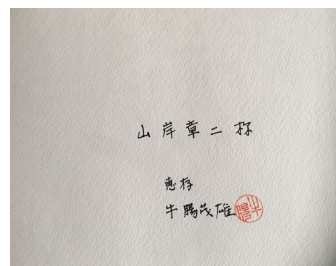 山岸章二 様
恵存
牛腸茂雄